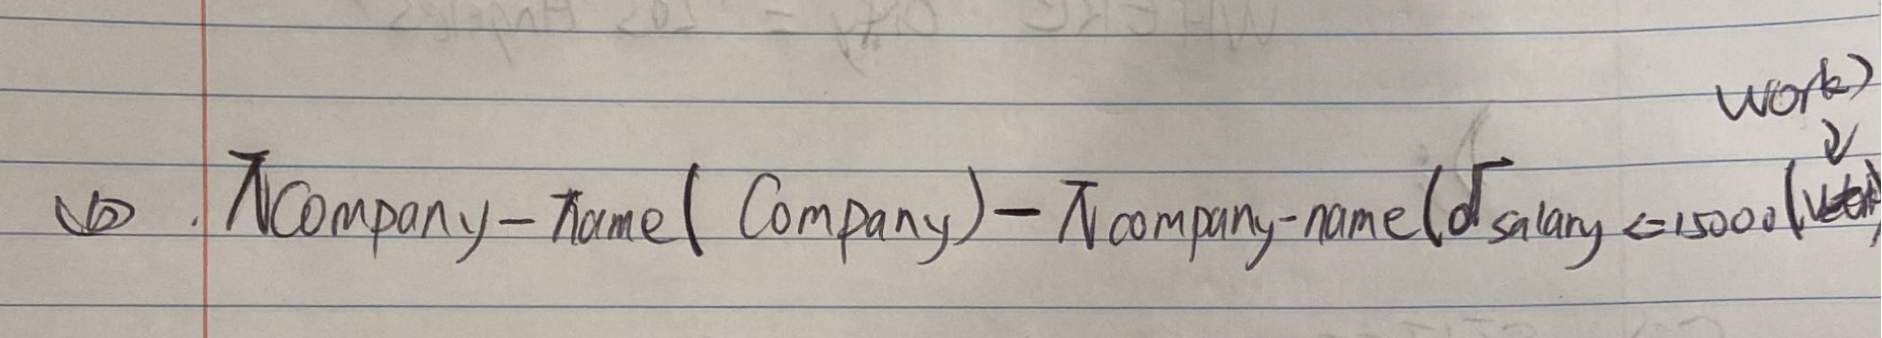 work)
↓
(b). πCompany-name( Company) - πcompany-name(σsalary <=15000(